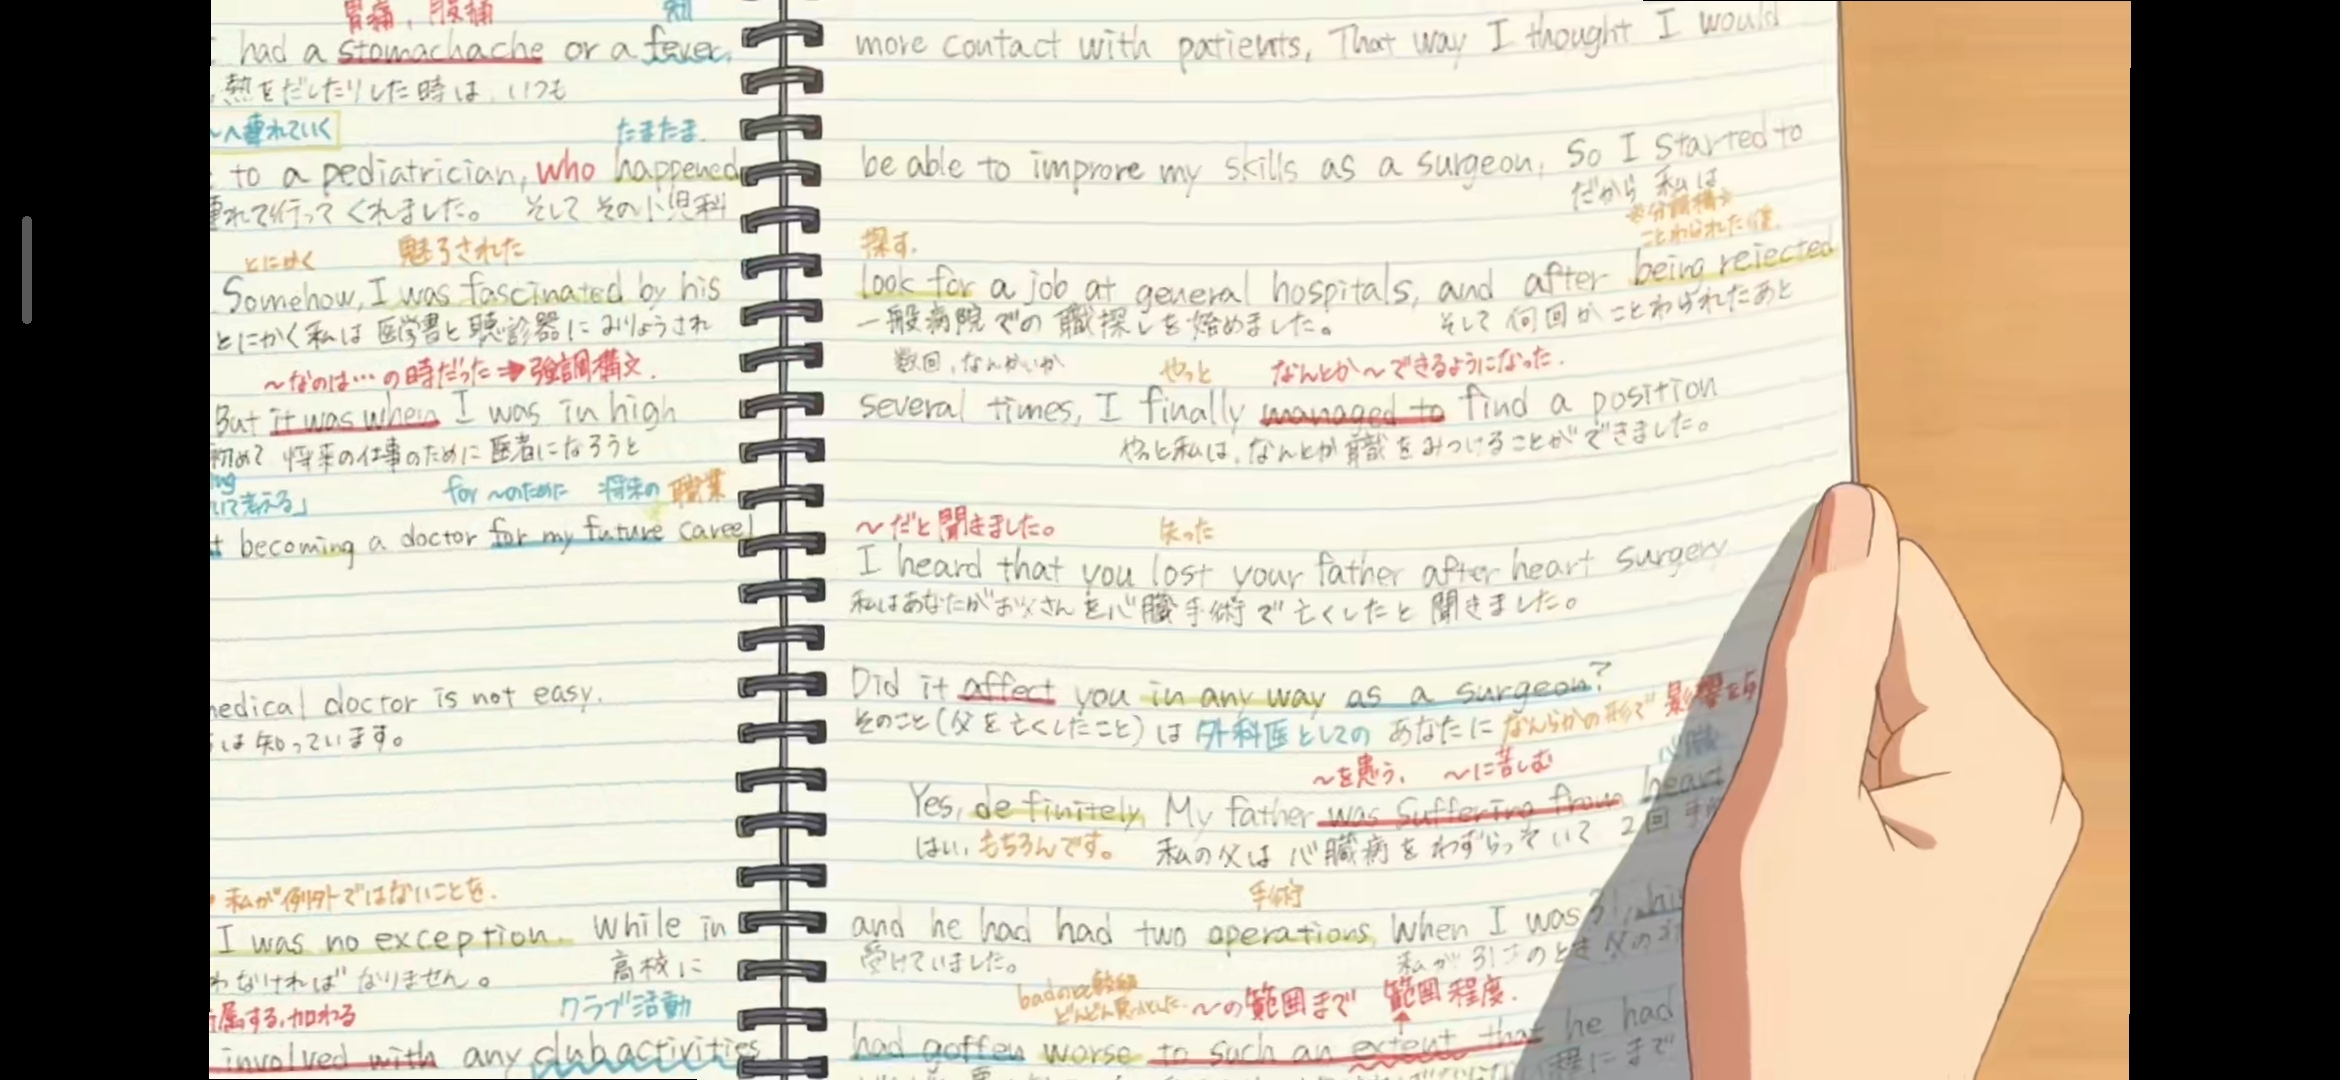 胃痛，腹痛
had a stomachache or a fever,
熱をだしたりした時は、いつも
〜へ連れていく たまたま.
to a pediatrician, who happened
連れて行ってくれました。 そして その小児科
とにかく 魅了された
Somehow, I was fascinated by his
とにかく私は 医学書と聴診器に みりょうされ
〜なのは…の時だった➡強調構文.
But it was when I was in high
初めて 将来の仕事のために 医者になろうと
for 〜のために 将来の 職業
becoming a doctor for my future career
medical doctor is not easy.
は知っています。
私が例外ではないことを.
I was no exception. While in
わなければなりません。 高校に
属する,加わる クラブ活動
involved with any club activities
more contact with patients, That way I thought I would
be able to improve my skills as a surgeon, So I started to
だから 私は
ことわられた後.
探す.
look for a job at general hospitals, and after being rejected
一般病院での職探しを始めました。 そして何回かことわられたあと
数回，なんかいか やっと なんとか〜できるようになった.
several times, I finally managed to find a position
やっと私は、なんとか職をみつけることができました。
〜だと聞きました。 失った
I heard that you lost your father after heart surgery
私はあなたがお父さんを心臓手術で亡くしたと聞きました。
Did it affect you in any way as a surgeon?
そのこと(父を亡くしたこと)は 外科医としての あなたに なんらかの形で 影響を
〜を患う, 〜に苦しむ 心臓
Yes, definitely, My father was suffering from heart
はい,もちろんです。 私の父は 心臓病をわずらっていて 2回
手術
and he had had two operations, When I was 31, his
受けていました。 私が31さのとき 父の
〜の範囲まで 範囲,程度.
had gotten worse to such an extent that he had
程にまで